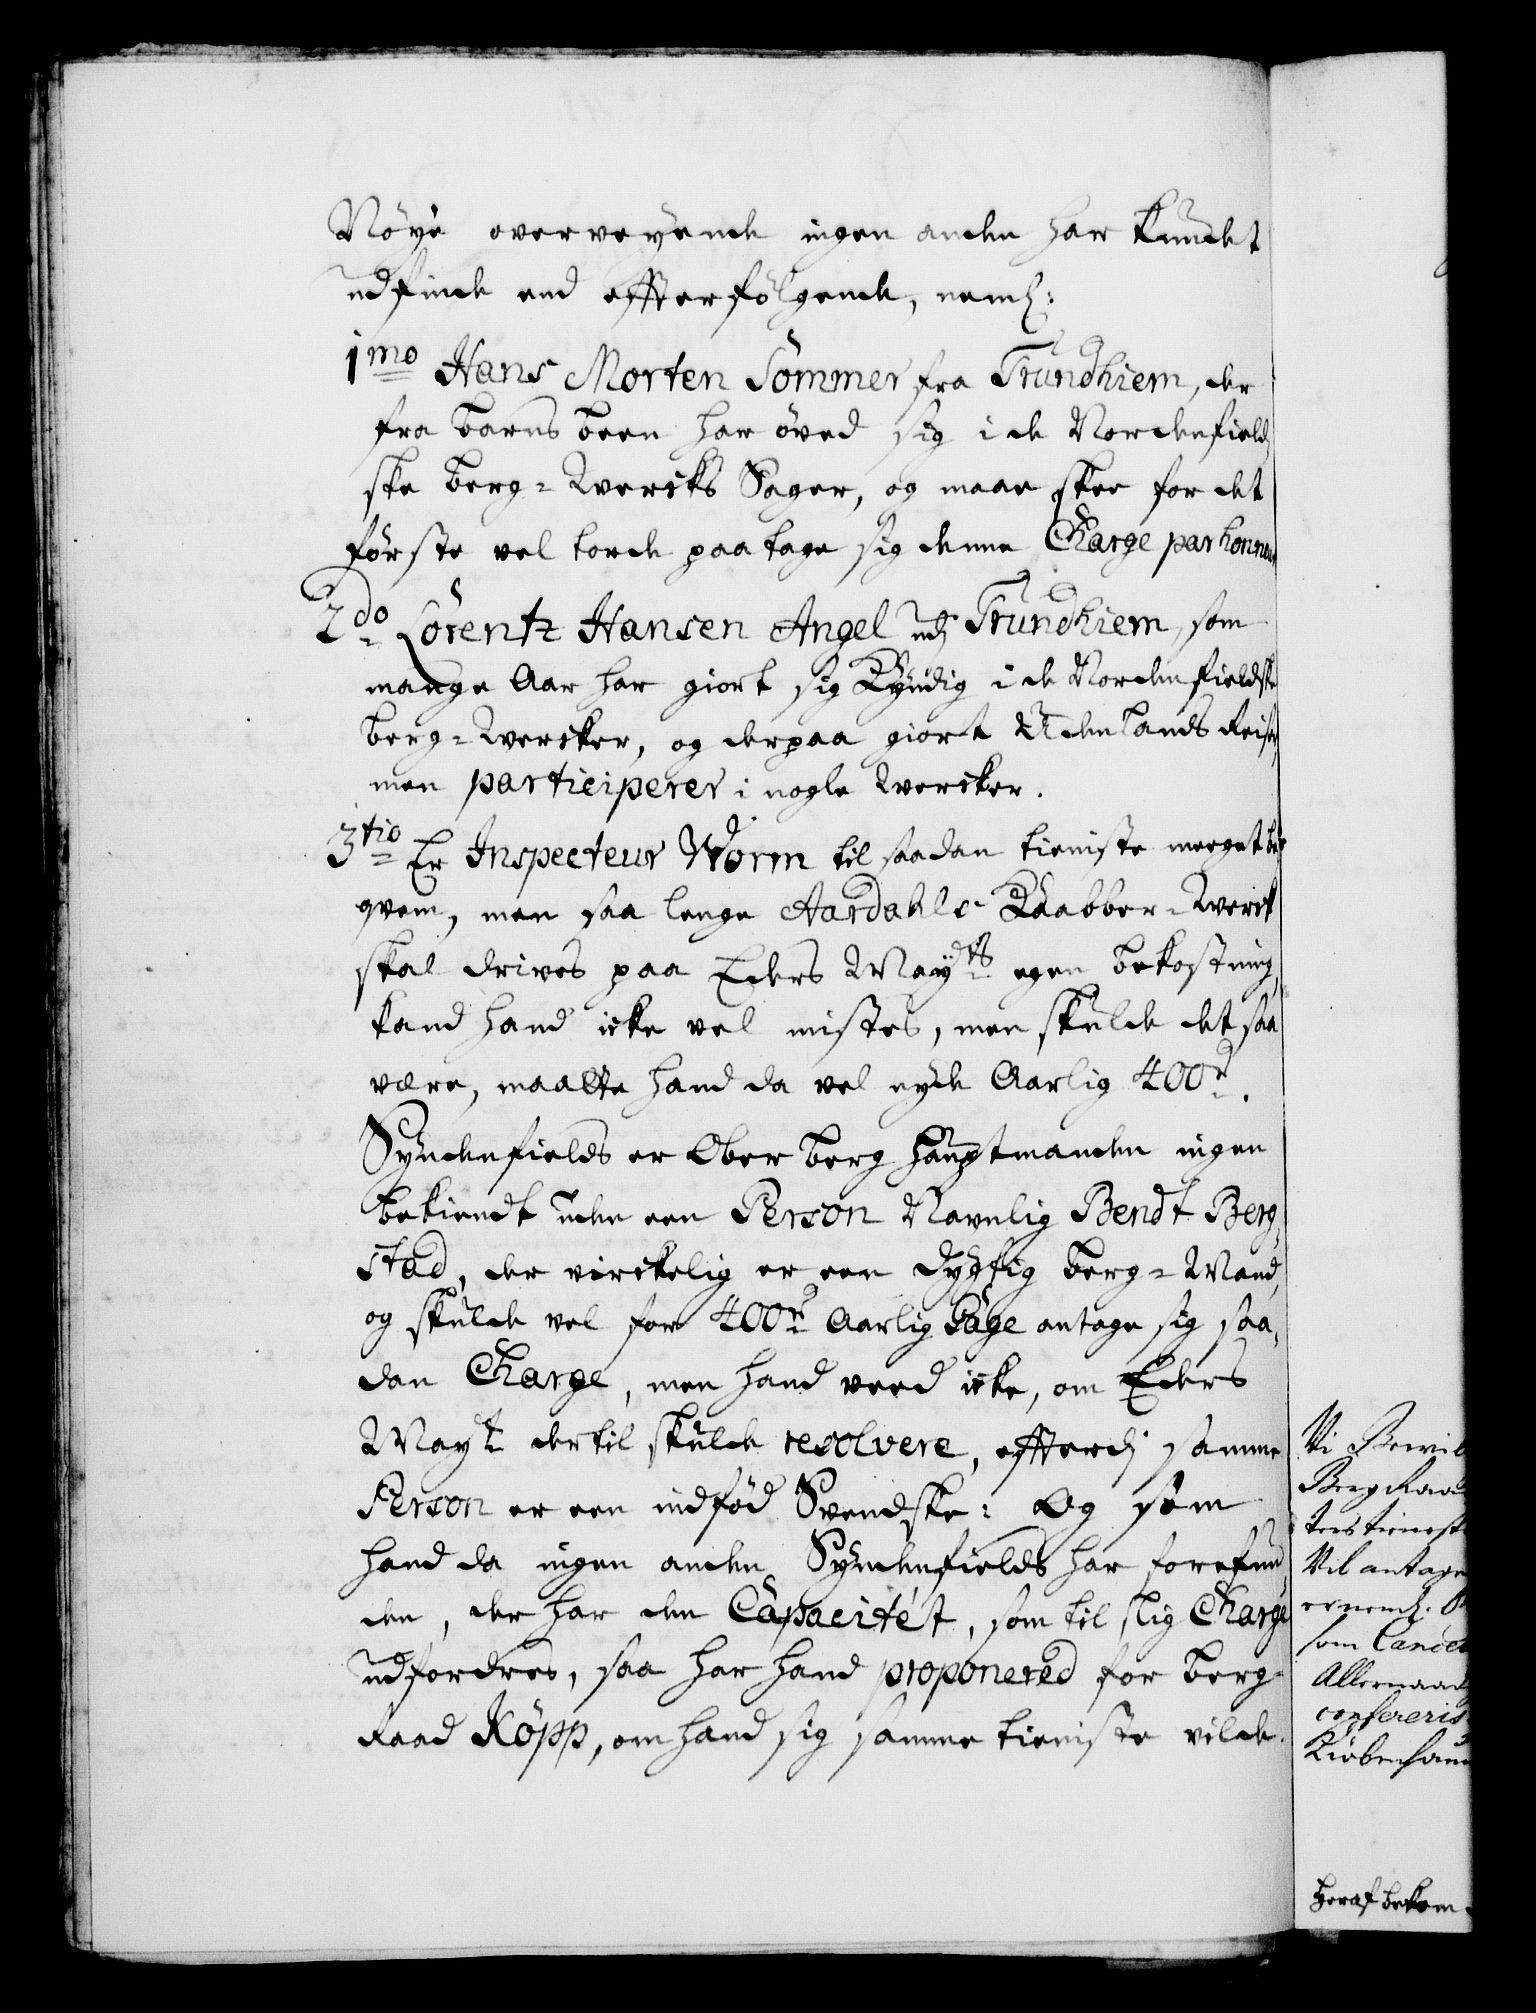 Nöye overveyende ingen anden har kundet
udfinde end effterfölgende, neml:
1mo Hans Morten Sommer fra Trundhiem, der
fra barns been har öved sig i de Nordenfield
ske berg-Wercks Sager, og maae skee for det
förste vel torde paatage sig denne Charge par honneur
2do Lorentz Hansen Angel udj Trundhiem, som
mange Aar har giort sig Kyndig i de Nordenfieldske
berg-Wercker, og derpaa giort Udenlands Reiser,
men participerer i nogle Wercker.
3tio Er Inspecteur Worm til saadan tieniste meeget be
qvem, men saa lenge Aardahls Kaabber-Werck
skal drives paa Eders Mayts egen bekostning,
kand hand icke vel mistes, men skulde det saa
være, maatte hand da vel nyde Aarlig 400r.
Syndenfields er Ober berg haubtmanden ingen
bekiendt uden een Person Navnlig Bendt Berg,
stad, der virckelig er een dygtig berg-Mand,
og skulde vel for 400r Aarlig Gage antage sig saa,
dan Charge, men hand veed icke, om Eders
Mayt dertil skulde resolvere, efterdj samme
Person er een indfød Svendske: Og som
hand da ingen anden Syndenfields har forefun
den, der har den Capacitét, som til slig Charge
udfordres, saa har hand proponered for berg-
Raad Köpp, om hand sig samme tieniste vilde
Vi Bewil
Berg Raad
ters tienest
Vil antage
er neml.
som Cancel
Allernaad
confereris
Kiøbenhavn
heraf bekom